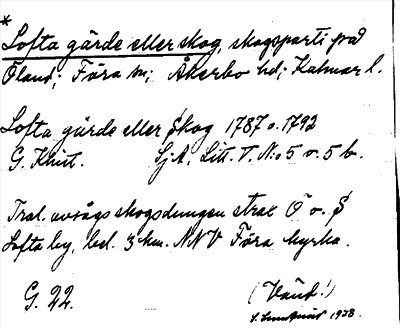 *
Lofta gärde eller skog, skogsparti på
Öland; Föra sn; Åkerbo hd; Kalmar l.
Lofta gärde eller Skog 1787 o. 1792
G. Khitt. SjA, Litt. T. N:o 5 o. 5 b.
Trol. avsågs skogsdungen strax Ö o. S
Lofta by, bel. 3 km. NNV Föra kyrka.
G. 22. (Vänd!)
1938